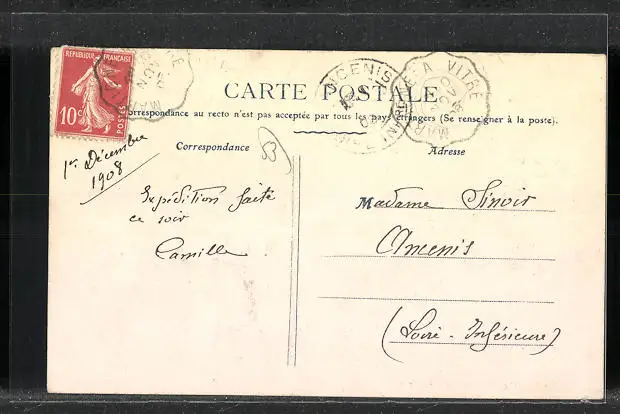 REPUBLIQUE FRANÇAISE
10c POSTES
ANCENIS
A VITRÉ
CARTE POSTALE
Correspondance au recto n'est pas acceptée par tous les pays étrangers (Se renseigner à la poste).
Correspondance
53
Adresse
1er Décembre
1908
Expédition faite
ce soir
Camille
Madame Sinoir
Ancenis
(Loire-Inférieure)